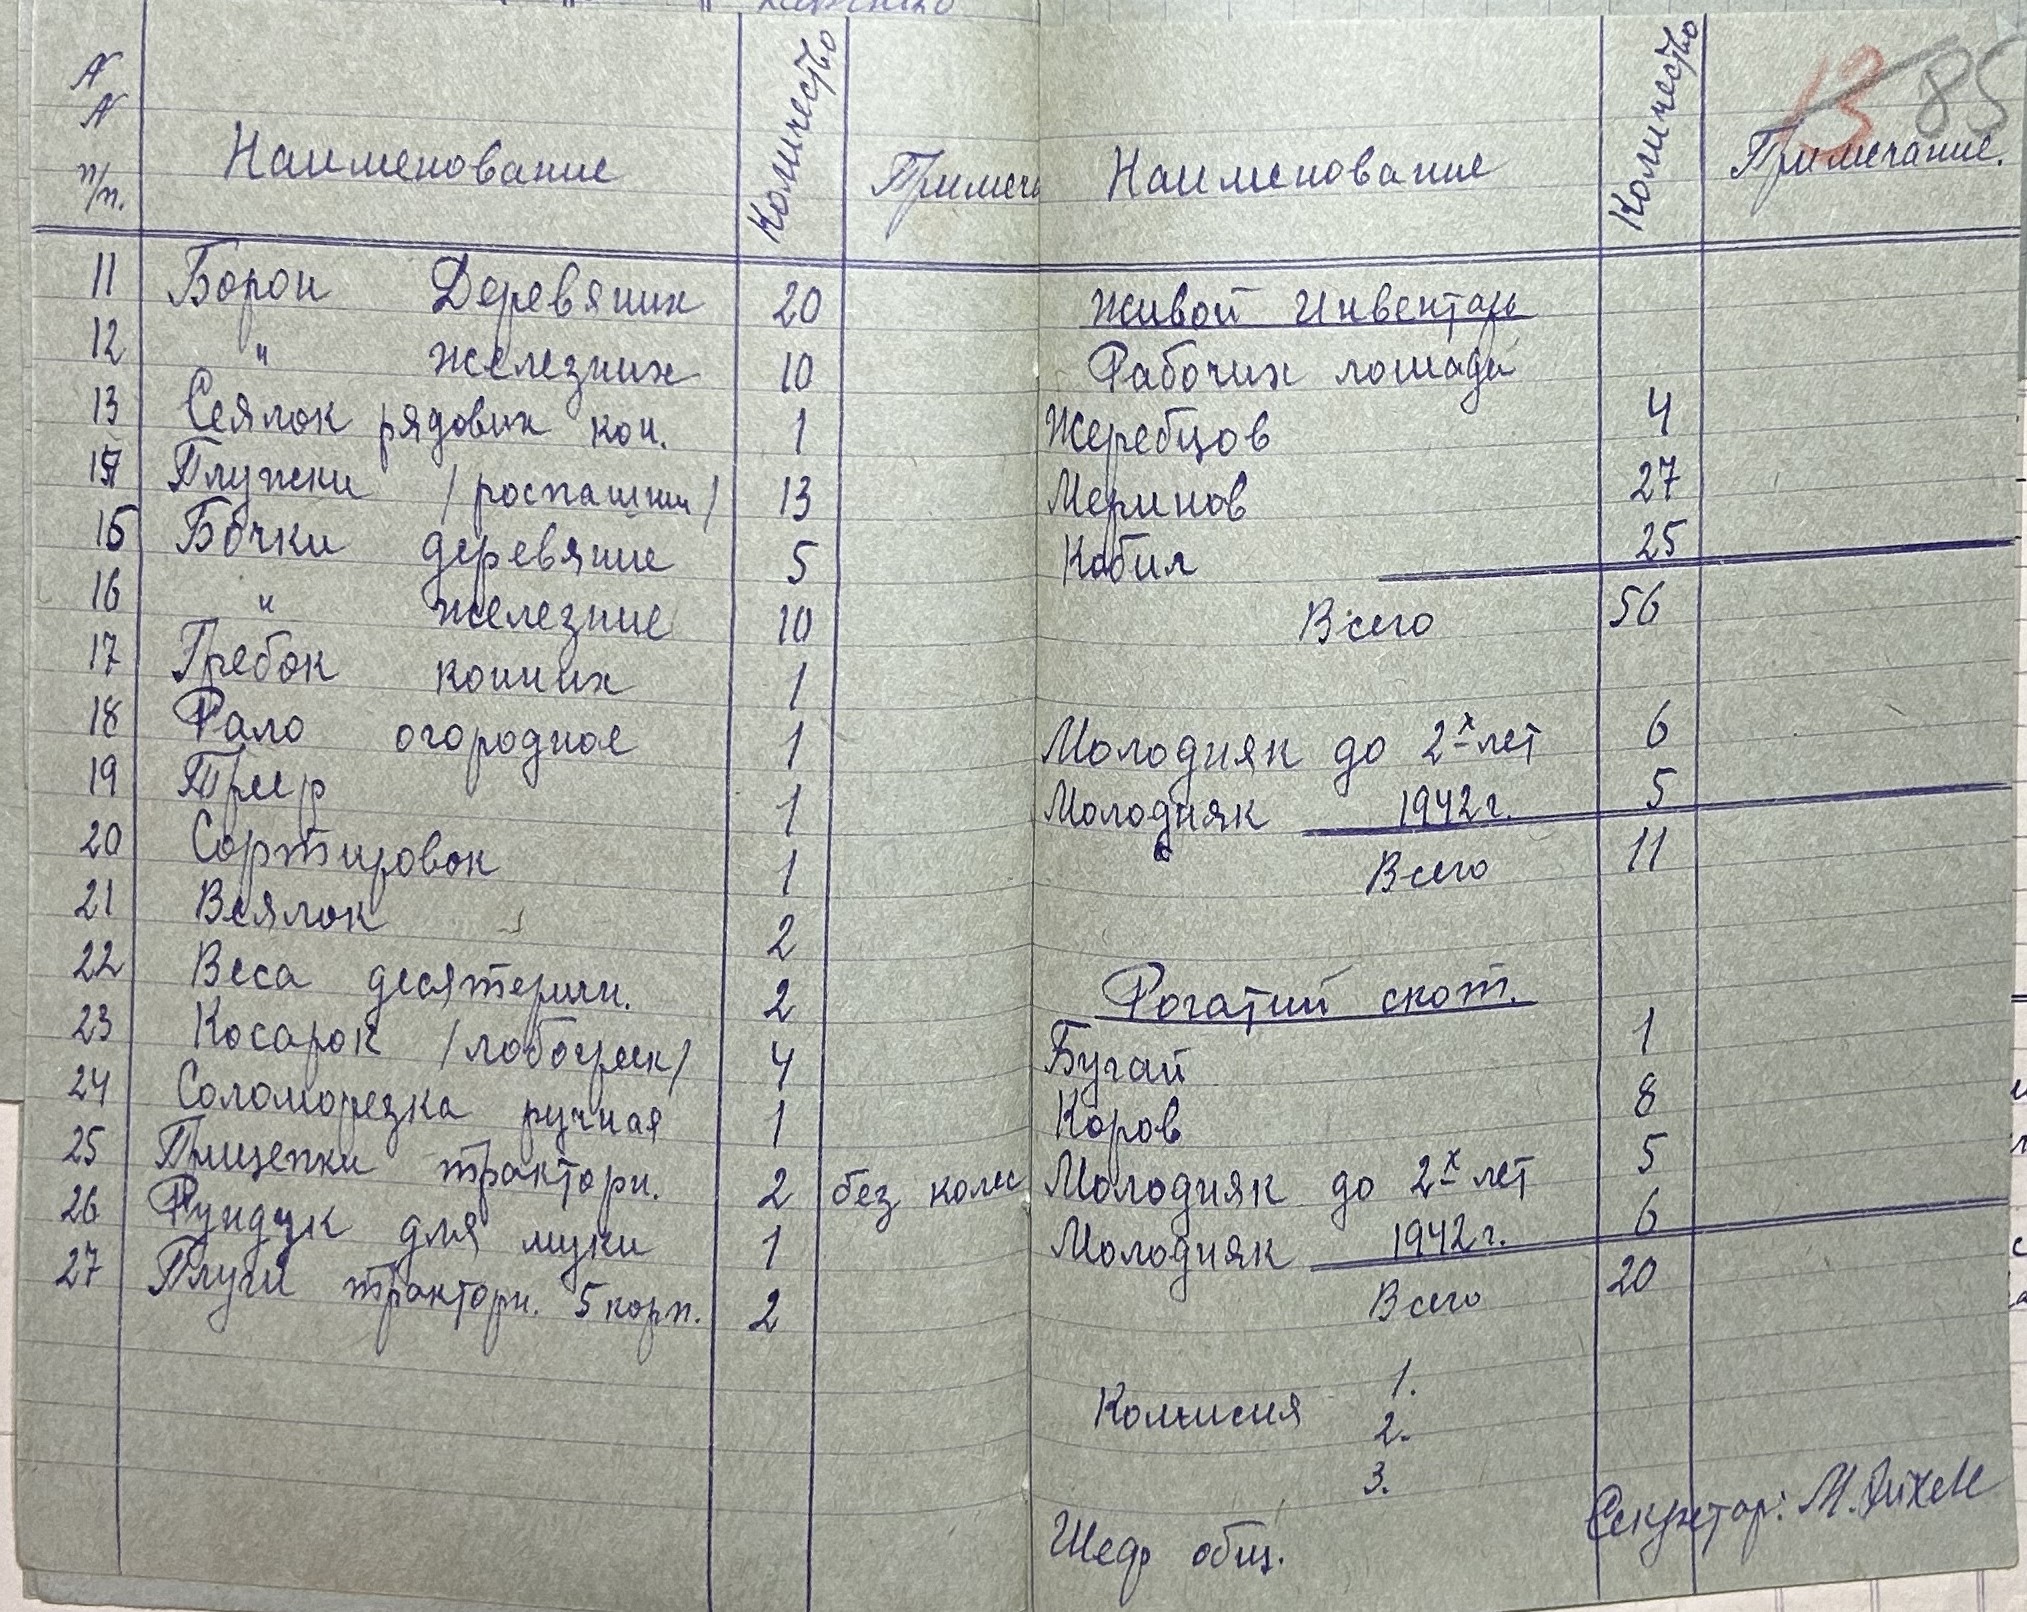 13 85
№ № п/п. Наименование Количество Примеч
11 Борон Деревяних 20
12 " железних 10
13 Сеялок рядових кон. 1
14 Плужки /роспашни/ 13
15 Бочки деревяние 5
16 " железние 10
17 Гребок конних 1
18 Рало огородное 1
19 Триер 1
20 Сортировок 1
21 Веялок 2
22 Веса десятерични. 2
23 Косарок /лобогреек/ 4
24 Соломорезка ручная 1
25 Прицепки трактори. 2 без колес
26 Рундук для муки 1
27 Плуги трактори. 5 корп. 2
Наименование Количество Примечание.
Живой Инвентарь
Рабочих лошадей
Жеребцов 4
Меринов 27
Кобил 25
Всего 56
Молодняк до 2х лет 6
Молодняк 1942 г. 5
Всего 11
Рогатий скот.
Бугай 1
Коров 8
Молодняк до 2х лет 5
Молодняк 1942 г. 6
Всего 20
Комисия 1.
2.
3.
Шеф общ.
Секретар: М.